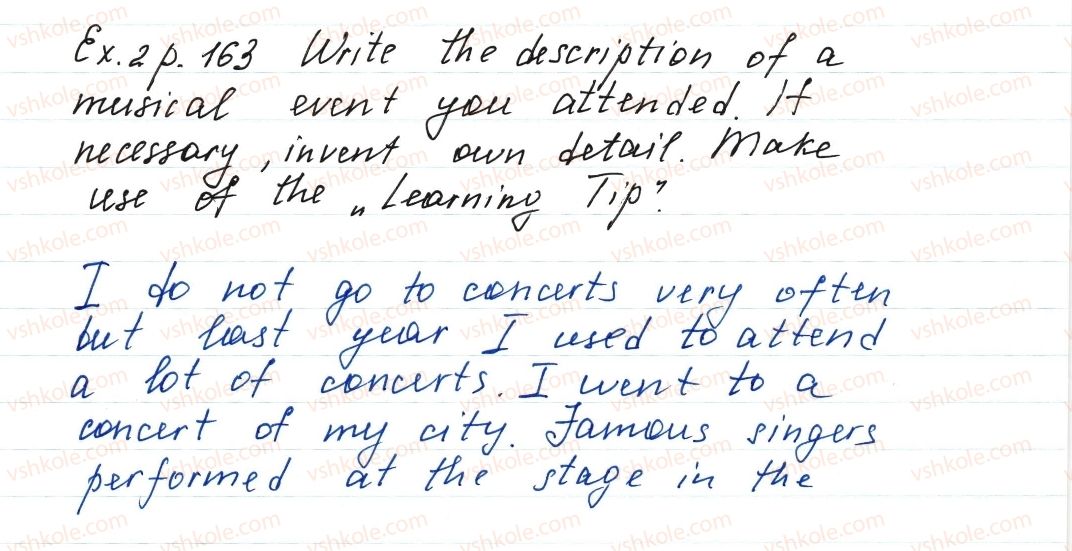 Ex. 2 p. 163 Write the description of a
musical event you attended. If
necessary, invent own detail. Make
use of the „Learning Tip".
I do not go to concerts very often
but last year I used to attend
a lot of concerts. I went to a
concert of my city. Famous singers
performed at the stage in the